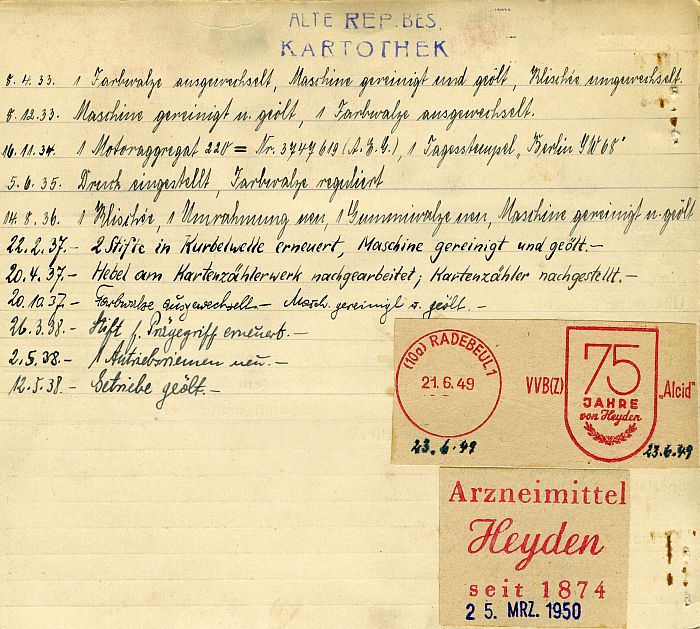 ALTE REP. BES.
KARTOTHEK
8.4.33. 1 Farbwalze ausgewechselt, Maschine gereinigt und geölt, Klischée umgewechselt.
8.12.33. Maschine gereinigt u. geölt, 1 Farbwalze ausgewechselt.
16.11.34. 1 Motoraggregat 220= Nr. 3747619 (A.E.G.), 1 Tagesstempel „Berlin SW68"
5.6.35. Druck eingestellt, Farbwalze reguliert
14.8.36. 1 Klischée, 1 Umrahmung neu, 1 Gummiwalze neu, Maschine gereinigt u. geölt
22.2.37.- 2 Stifte in Kurbelwelle erneuert, Maschine gereinigt und geölt.-
20.4.37.- Hebel am Kartenzählerwerk nachgearbeitet; Kartenzähler nachgestellt.-
20.10.37.- Farbwalze ausgewechselt.- Masch. gereinigt u. geölt.-
26.3.38.- Stift f. Prägegriff erneuert.-
2.5.38.- 1 Antriebsriemen neu.-
12.5.38.- Getriebe geölt.-
(10a) RADEBEUL 1
21.6.49
VVB(Z) „Alcid"
75
JAHRE
von Heyden
23.6.49 23.6.49
Arzneimittel
Heyden
seit 1874
25. MRZ. 1950